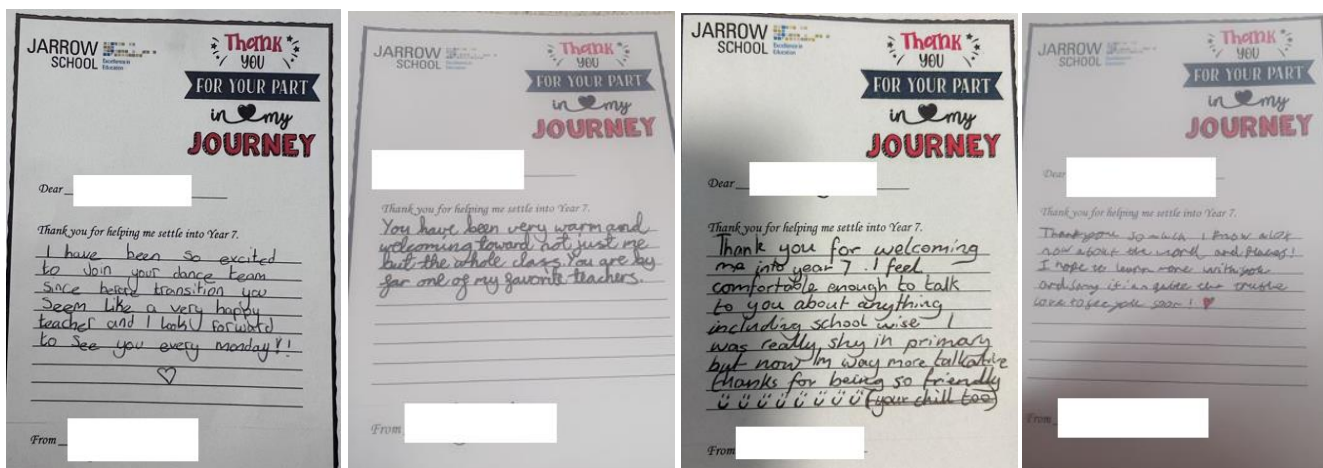 JARROW
SCHOOL
Excellence in
Education
Thank
YOU
FOR YOUR PART
in my
JOURNEY
Dear
Thank you for helping me settle into Year 7.
I have been so excited
to join your dance team
since before transition you
seem like a very happy
teacher and I look forward
to see you every monday!!
From
JARROW
SCHOOL
Excellence in
Education
Thank
YOU
FOR YOUR PART
in my
JOURNEY
Thank you for helping me settle into Year 7.
You have been very warm and
welcoming toward not just me
but the whole class. You are by
far one of my favorite teachers.
From
JARROW
SCHOOL
Excellence in
Education
Thank
YOU
FOR YOUR PART
in my
JOURNEY
Dear
Thank you for helping me settle into Year 7.
Thank you for welcoming
me into year 7. I feel
comfortable enough to talk
to you about anything
including school wise I
was really shy in primary
but now Im way more talkative
thanks for being so friendly
(your chill too)
From
JARROW
SCHOOL
Excellence in
Education
Thank
YOU
FOR YOUR PART
in my
JOURNEY
Dear
Thank you for helping me settle into Year 7.
Thankyou so much I know alot
now about the world and places!
I hope to learn more with you
and sorry if i am quiet
love to see you soon!
From